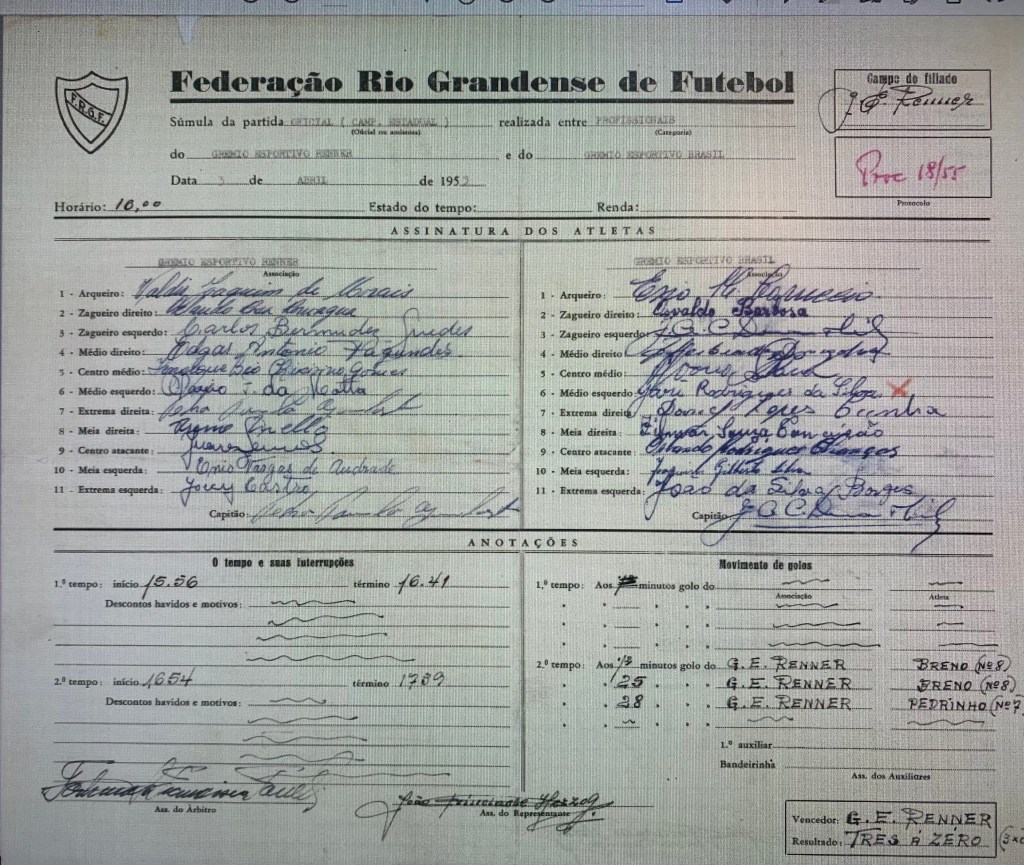 Federação Rio Grandense de Futebol
F.R.G.F.
Campo do filiado
G. E. Renner
Súmula da partida OFICIAL ( CAMP. ESTADUAL ) realizada entre PROFISSIONAIS
(Oficial ou amistosa) (Categoria)
do GREMIO ESPORTIVO RENNER e do GREMIO ESPORTIVO BRASIL
Proc 18/55
Protocolo
Data 3 de ABRIL de 1955
Horário: 16,00 Estado do tempo: Renda:
ASSINATURA DOS ATLETAS
GREMIO ESPORTIVO RENNER
Associação
1 - Arqueiro: Valdir Joaquim de Morais
2 - Zagueiro direito:
3 - Zagueiro esquerdo: Carlos Bermudes Guedes
4 - Médio direito: Edgar Antonio Fagundes
5 - Centro médio: Gomes
6 - Médio esquerdo: da Motta
7 - Extrema direita: Pedro
8 - Meia direita: Breno Mello
9 - Centro atacante: Juarez
10 - Meia esquerda: Enio Vargas de Andrade
11 - Extrema esquerda: Joecy Castro
Capitão: Pedro
GREMIO ESPORTIVO BRASIL
Associação
1 - Arqueiro: Enio
2 - Zagueiro direito: Osvaldo Barbosa
3 - Zagueiro esquerdo: J. G. C.
4 - Médio direito:
5 - Centro médio:
6 - Médio esquerdo: Rodrigues da Silva
7 - Extrema direita: Daniel Lopes Cunha
8 - Meia direita: Souza Conceição
9 - Centro atacante: Orlando Rodrigues
10 - Meia esquerda: Joaquim Gilberto Silva
11 - Extrema esquerda: João da Silva Borges
Capitão: J. G. C.
ANOTAÇÕES
O tempo e suas interrupções
1.º tempo: início 15.56 término 16.41
Descontos havidos e motivos:
2.º tempo: início 1654 término 1739
Descontos havidos e motivos:
Ass. do Árbitro
Ass. do Representante
Movimento de golos
1.º tempo: Aos minutos golo do
Associação Atleta
2.º tempo: Aos 13 minutos golo do G. E. RENNER BRENO (Nº 8)
25 G. E. RENNER BRENO (Nº 8)
28 G. E. RENNER PEDRINHO (Nº 7
1.º auxiliar
Bandeirinha
Ass. dos Auxiliares
Vencedor: G. E. RENNER
Resultado: TRES A ZÉRO (3x